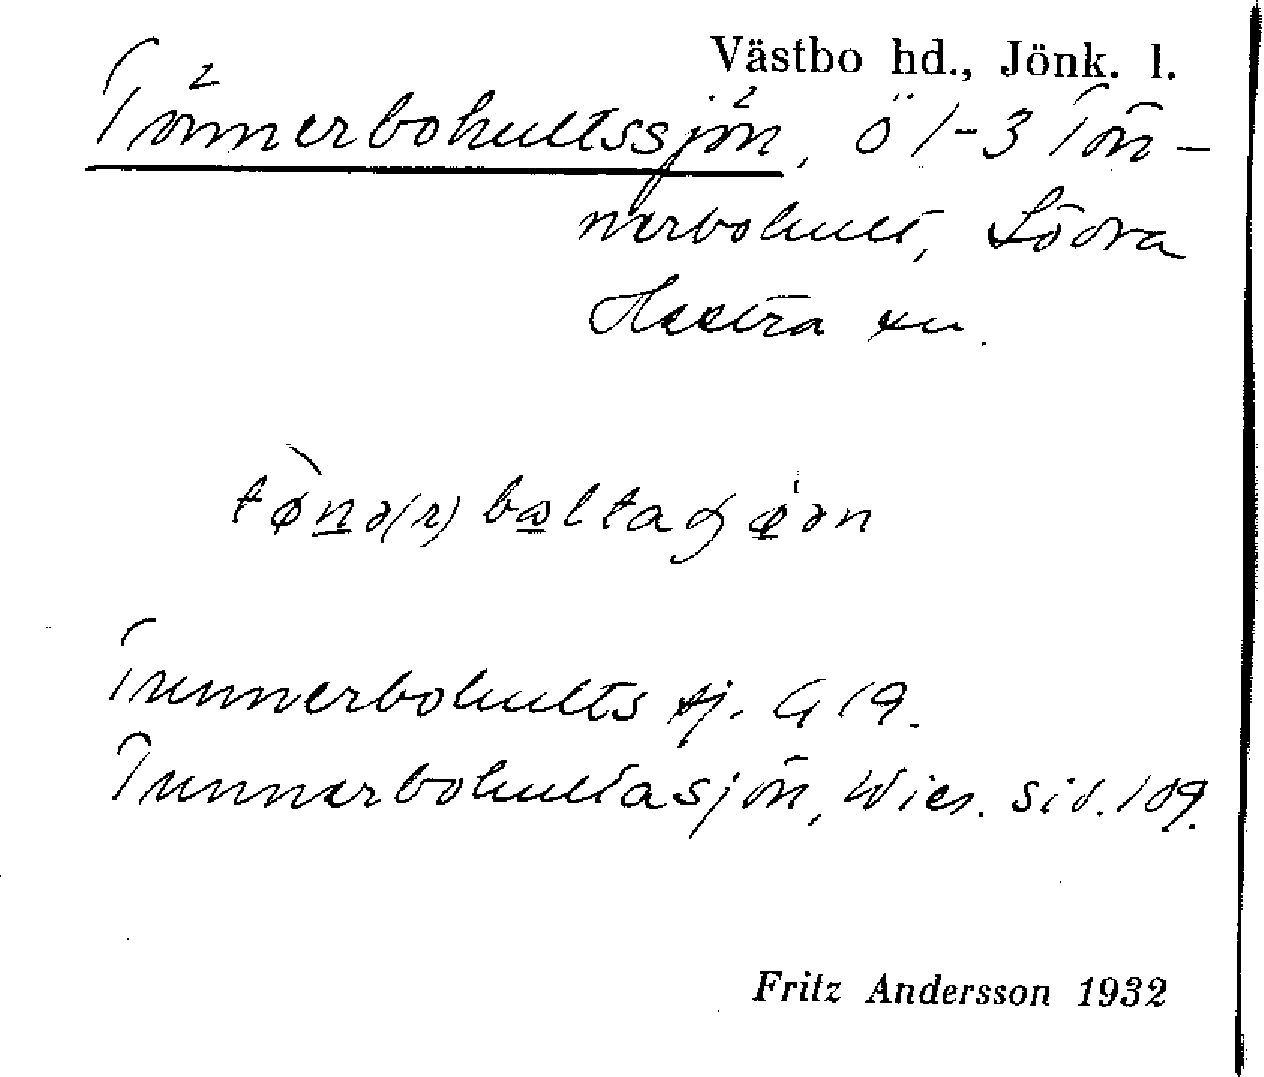 Västbo hd., Jönk. l.
Tönnerbohultssjön, Ö 1-3 Tön-
nerbohult, Södra
Hestra sn.
tøn̲ə(r)bɷltaʃø̲ən
Tunnerbohults sj. G 19.
Tunnerbohultasjön, Wies. sid. 109.
Fritz Andersson 1932